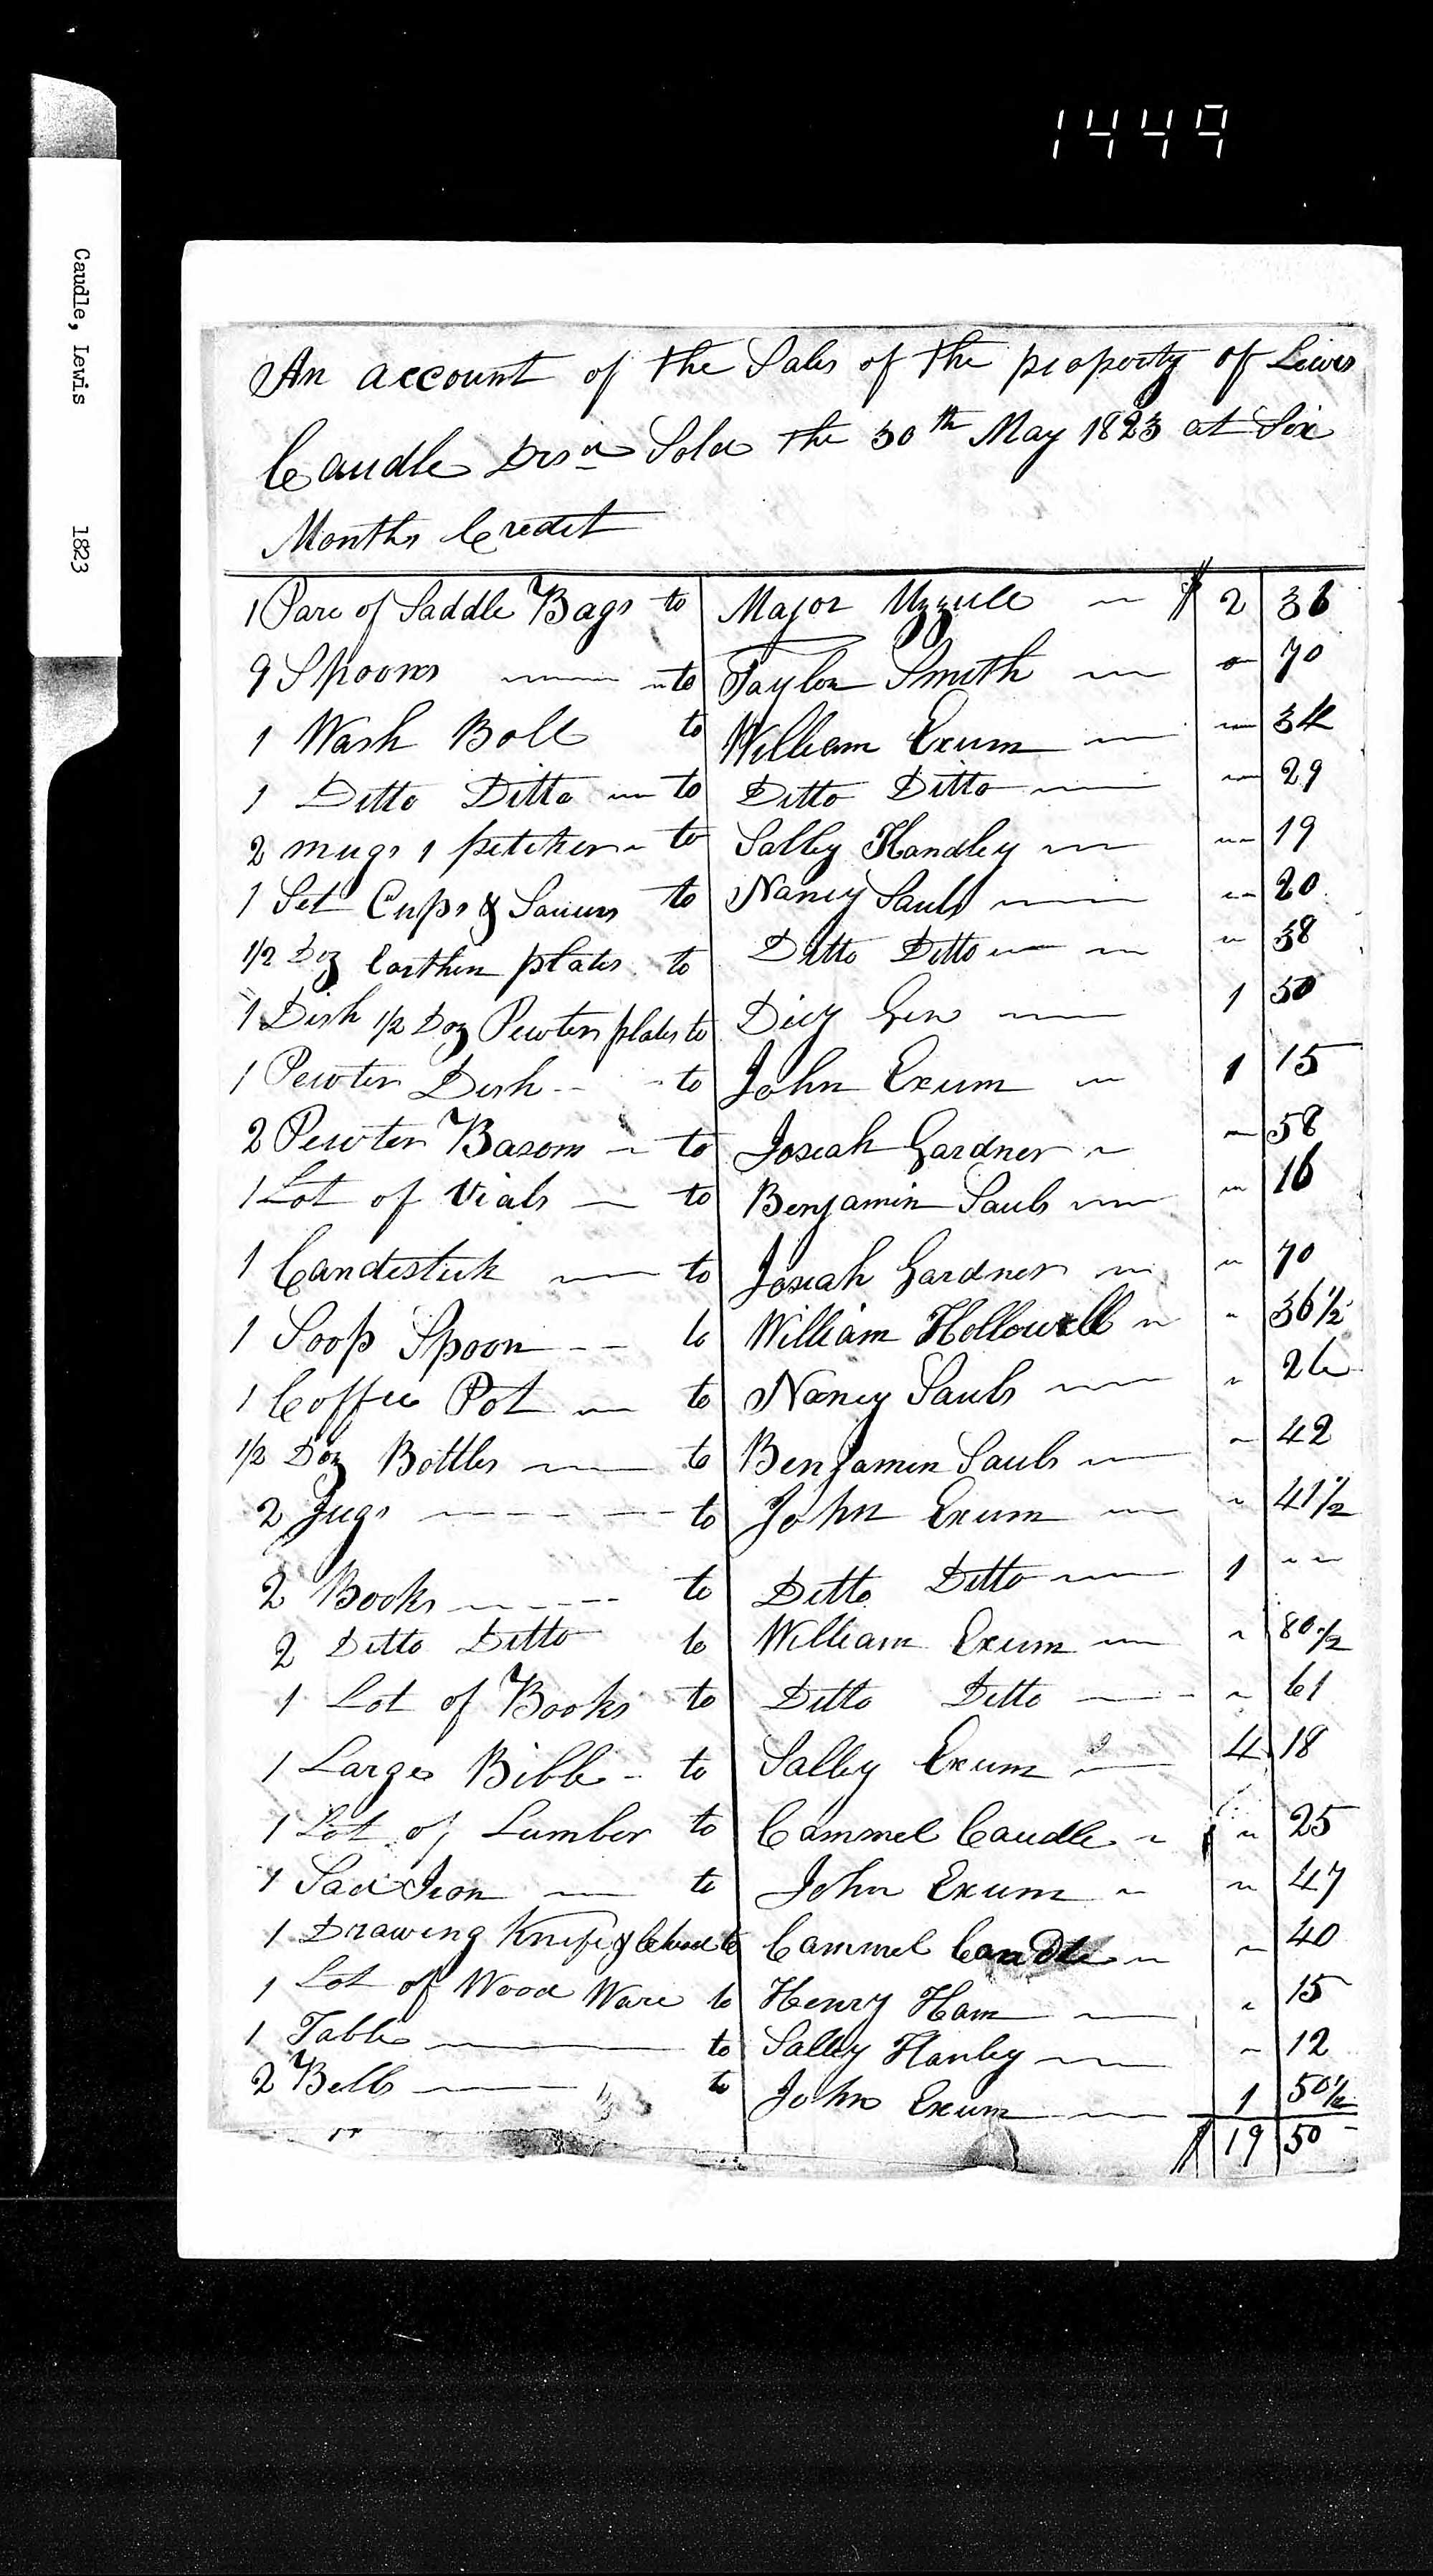 1449
Caudle, Lewis 1823
An account of the Sales of the property of Lewis
Caudle Desd Sold the 30th May 1823 at Six
Months Credit
1 Pare of Saddle Bags to Major Uzzule $ 2 36
9 Spoons to Taylor Smith 70
1 Wash Boll to William Exum 34
1 Ditto Ditto to Ditto Ditto 29
2 mugs 1 pitcher to Salley Handley 19
1 Set Cups & Saucers to Nancy Sauls 20
1/2 Doz Earthen plates to Ditto Ditto 38
1 Dish 1/2 Doz Pewter plates to Dicy 1 50
1 Pewter Dish to John Exum 1 15
2 Pewter Basons to Josiah Gardner 58
1 Lot of Vials to Benjamin Sauls 16
1 Candestick to Josiah Gardner 70
1 Soop Spoon to William Hollowell 36 1/2
1 Coffee Pot to Nancy Sauls 26
1/2 Doz Bottles to Benjamin Sauls 42
2 Jugs to John Exum 41 1/2
2 Books to Ditto Ditto 1
2 Ditto Ditto to William Exum 80 1/2
1 Lot of Books to Ditto Ditto 61
1 Large Bible to Salley Exum 4 18
1 Lot of Lumber to Cammel Caudle 25
1 Sad Iron to John Exum 47
1 Drawing Knife & to Cammel Caudle 40
1 Lot of Wood Ware to Henry Ham 15
1 Table to Salley Hanley 12
2 Bells to John Exum 1 50 1/2
$ 19 50